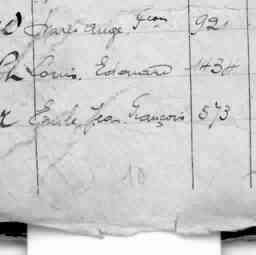 Charles Ange Jean 92
Louis Edouard 1434
Emile Jean François 573
10